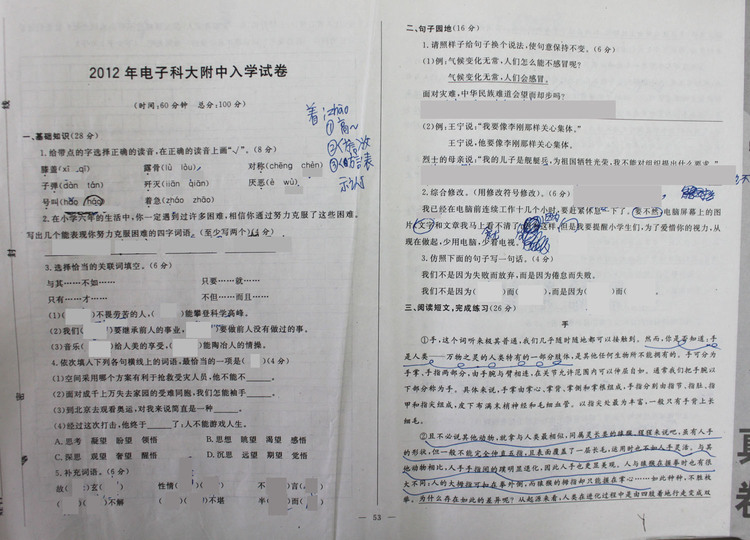 2012年电子科大附中入学试卷
(时间:60分钟 总分:100分)
一、基础知识(28分)
1.给带点的字选择正确的读音,在正确的读音上画“√”。(8分)
膝盖(xī qī) 露骨(lù lòu) 对称(chēng chèn)
子弹(dàn tán) 歼灭(jiān qiān) 厌恶(è wù)
号叫(hào háo) 着急(zháo zhāo)
2.在小学六年的生活中,你一定遇到过许多困难,相信你通过努力克服了这些困难。
写出几个能表现你努力克服困难的四字词语。(至少写两个)(1分)
3.选择恰当的关联词填空。(6分)
与其……不如…… 只要……就……
只有……才…… 不但……而且……
(1)( )不畏劳苦的人,( )能攀登科学高峰。
(2)我们( )要继承前人的事业,( )要做前人没有做过的事。
(3)音乐( )给人美的享受,( )能陶冶人的情操。
4.依次填入下列各句横线上的词语,最恰当的一项是( )(4分)
(1)空间采用哪个方案有利于抢救受灾人员,他不能不____。
(2)面对成千上万失去家园的受难同胞,我们怎能袖手____。
(3)到北京去观看奥运,对我来说简直是一种____。
(4)经过这次打击,他终于____了:人不能游戏人生。
A.思考 凝望 盼望 领悟 B.思想 眺望 渴望 感悟
C.深思 观望 奢望 醒悟 D.沉思 远望 期望 觉悟
5.补充词语。(5分)
故( )玄( ) 性情( )( ) 不( )言( )
( )( )不解 ( )( )不堪 半( )而( )
着:zhāo
①高~
53
二、句子园地(16分)
1.请照样子给句子换个说法,使句意保持不变。(6分)
(1)例:气候变化无常,人们怎么能不感冒呢?
气候变化无常,人们会感冒。
面对灾难,中华民族难道会望而却步吗?
(2)例:王宁说:“我要像李刚那样关心集体。”
王宁说,他要像李刚那样关心集体。
烈士的母亲说:“我的儿子是舰艇兵,为祖国牺牲光荣,我不能对组织提出什么要求。”
2.综合修改。(用修改符号修改)。(6分)
我已经在电脑前连续工作十几个小时,要赶紧休息一下了。要不然,电脑屏幕上的图
片、文字和文章我马上看不清了。这样,但是我要提醒小学生们,为了爱惜你的视力,从
现在做起,少用电脑,少看电视。
3.仿照下面的句子写一句话。(4分)
我们不是因为失败而放弃,而是因为倦怠而失败。
我们不是因为( )而( ),而是因为( )而( )
三、阅读短文,完成练习(26分)
手
①手,这个词听来极其普通,我们几乎随时随地都可以接触到。然而,你是否知道:手
是人类——万物之灵的人类特有的一部分肢体,是其他任何生物所不能拥有的。手可分为
手掌、手指两部分,由手腕与臂相连,在关节允许范围内可以伸屈自如。通常我们把手腕以
下部分称为手。具体来说,手掌由掌心、掌背、掌侧和掌根组成,手指分别由指节、指肚、指
甲和指尖组成,皮下布满末梢神经和毛细血管。以指尖处最为丰富,一般只有手背上长
细毛。
②且不必说其他动物,就拿与人类最相似,同属灵长类的猿猴、猩猩来说吧,虽有人手
的形状,但一般不能完全伸直五指,且表面覆盖了一层长毛,运用时也不如人手灵活。与其
他动物相比,人手手指间的蹼明显退化,因此人手也更显美观。人与猿猴在握拳时也有很
大不同:人的大拇指可如在拳外侧,而猿猴的拇指却只能握在掌心……如此种种,不胜枚
举。为什么存在如此的差异呢?从起源来看,人类在进化过程中是由四肢着地行走变成双
真
卷
线
封
密